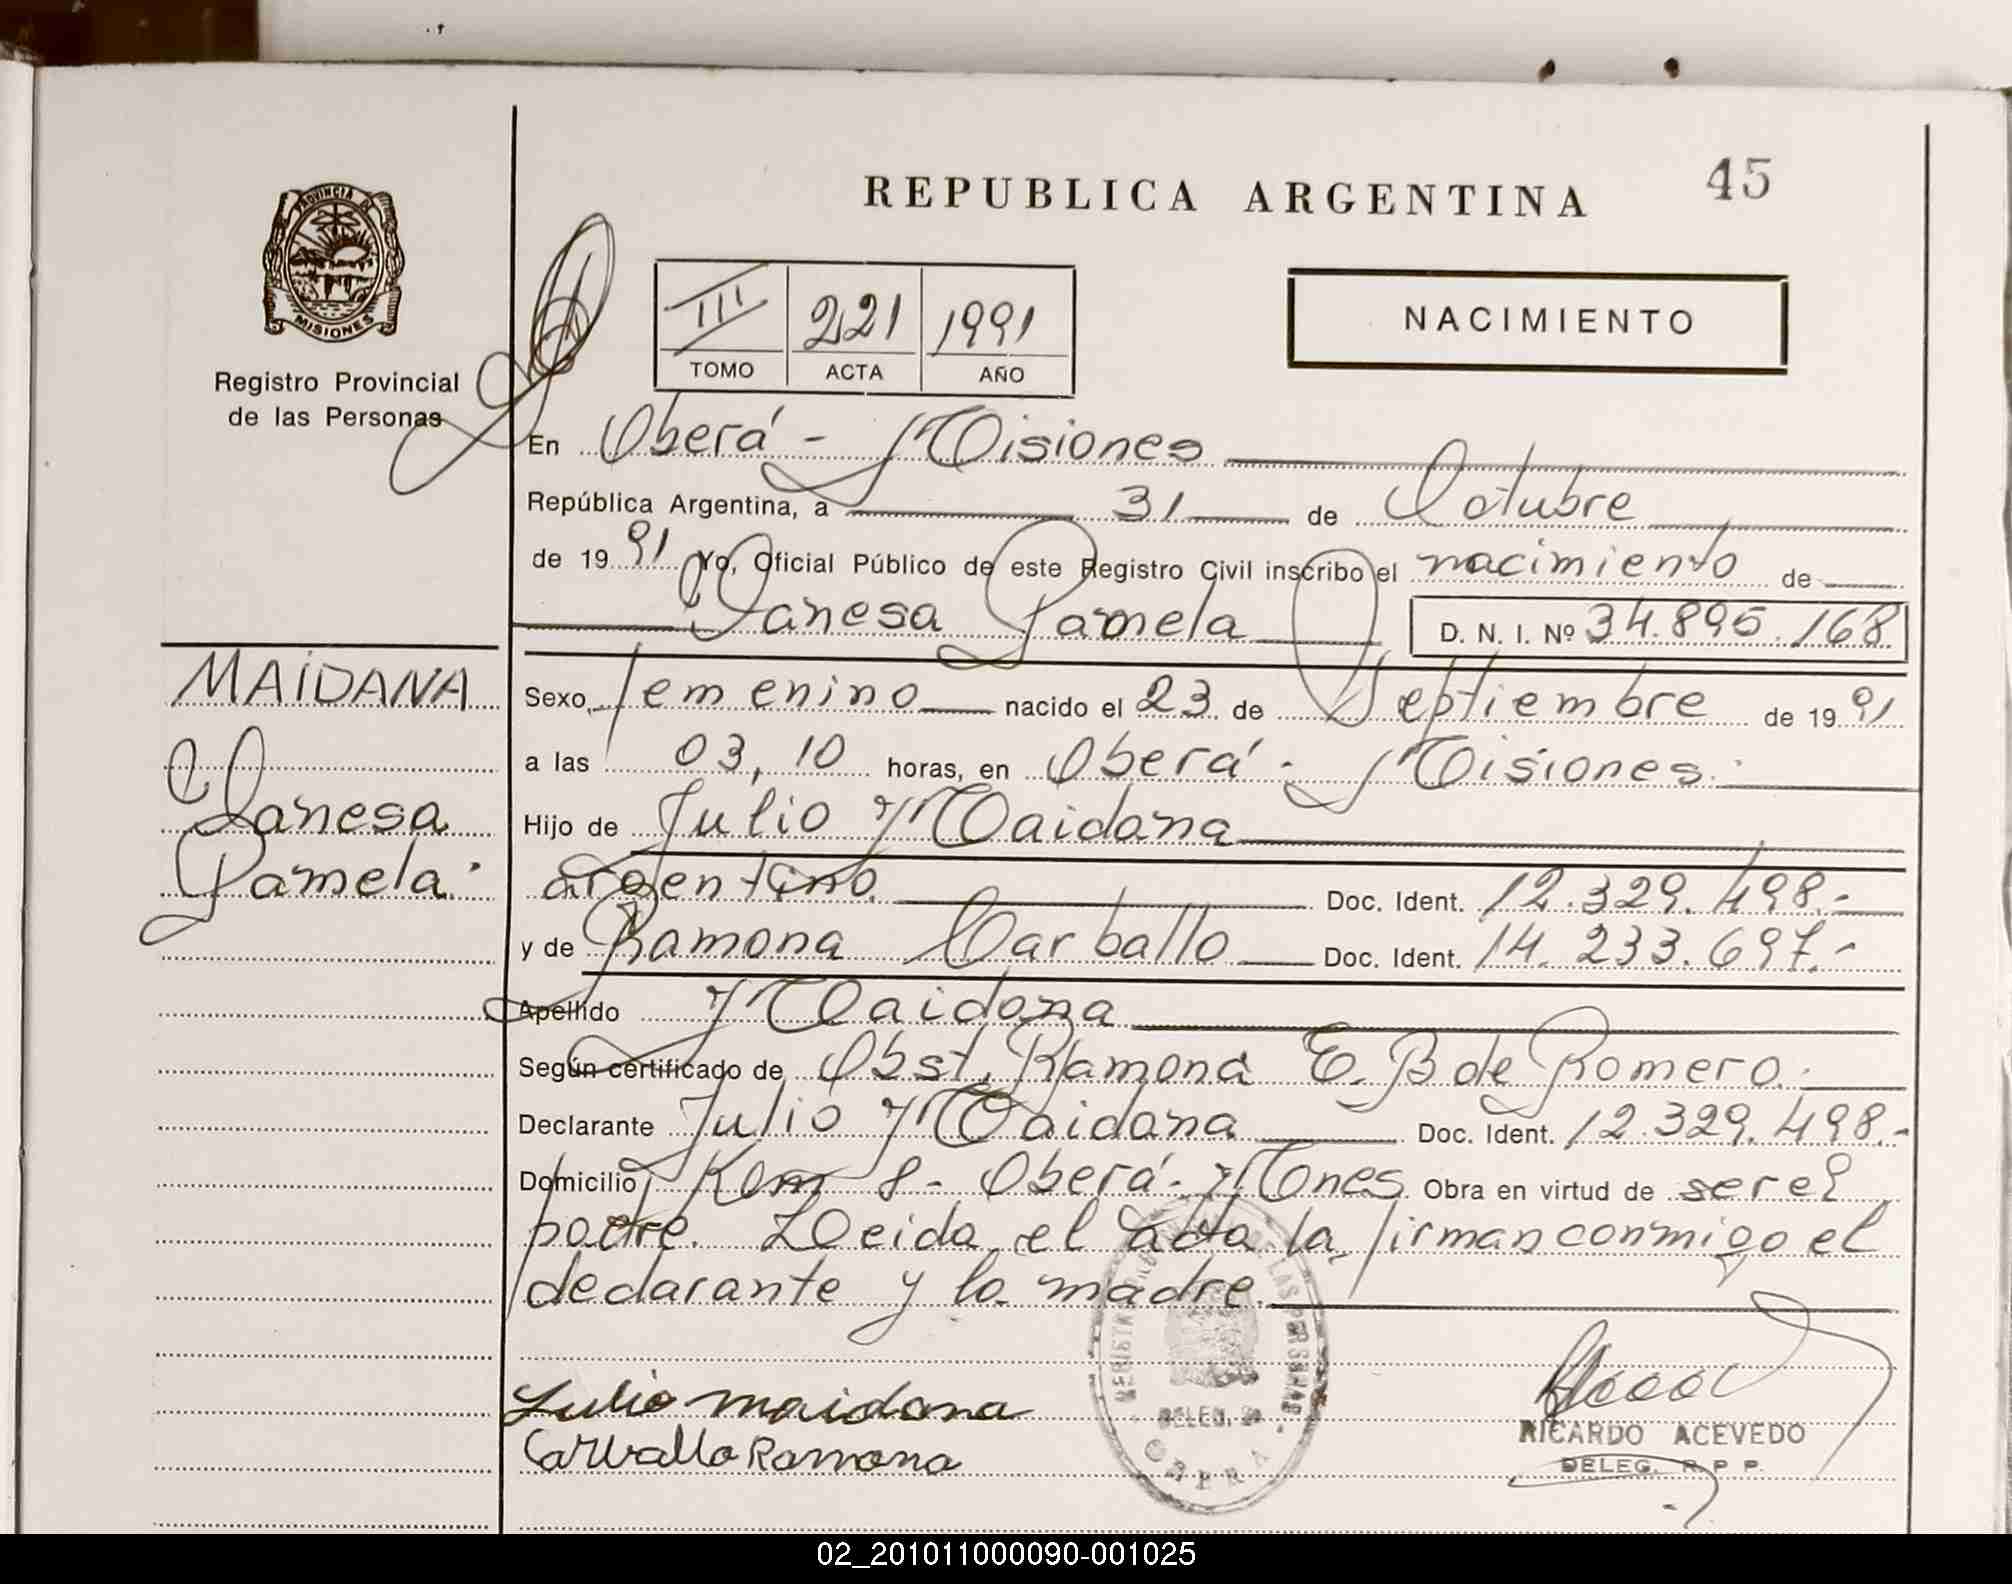 45
REPUBLICA ARGENTINA
PROVINCIA DE
MISIONES
Registro Provincial
de las Personas
III 221 1991
TOMO ACTA AÑO
NACIMIENTO
En Oberá - Misiones
República Argentina, a 31 de Octubre
de 1991 Yo, Oficial Público de este Registro Civil inscribo el nacimiento de
Vanesa Pamela D. N. I. Nº 34.895.168
MAIDANA
Vanesa
Pamela.
Sexo, femenino nacido el 23 de Septiembre de 1991
a las 03,10 horas, en Oberá - Misiones.
Hijo de Julio Maidana
argentino. Doc. Ident. 12.329.498.-
y de Ramona Carballo Doc. Ident. 14.233.697.-
Apellido Maidana
Según certificado de Obst. Ramona E. B de Romero.
Declarante Julio Maidana Doc. Ident. 12.329.498.-
Domicilio Km 8 - Oberá - Mones. Obra en virtud de ser el
padre. Leida el acta la firman conmigo el
declarante y la madre.
Julio maidana
Carballo Ramona
REGISTRO PROVINCIAL DE LAS PERSONAS
DELEG.
OBERA
RICARDO ACEVEDO
DELEG. R. P. P.
02_201011000090-001025